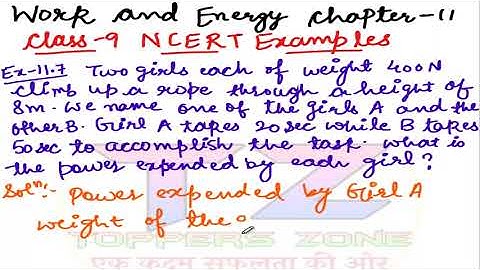 Work and Energy Chapter-11
Class-9 NCERT Examples
Ex-11.7 Two girls each of weight 400N
climb up a rope through a height of
8m. We name one of the girls A and the
other B. Girl A takes 20 sec while B takes
50 sec to accomplish the task. what is
the power expended by each girl?
Solⁿ:- Power expended by Girl A
weight of the
TZ
TOPPERS ZONE
एक कदम सफलता की ओर